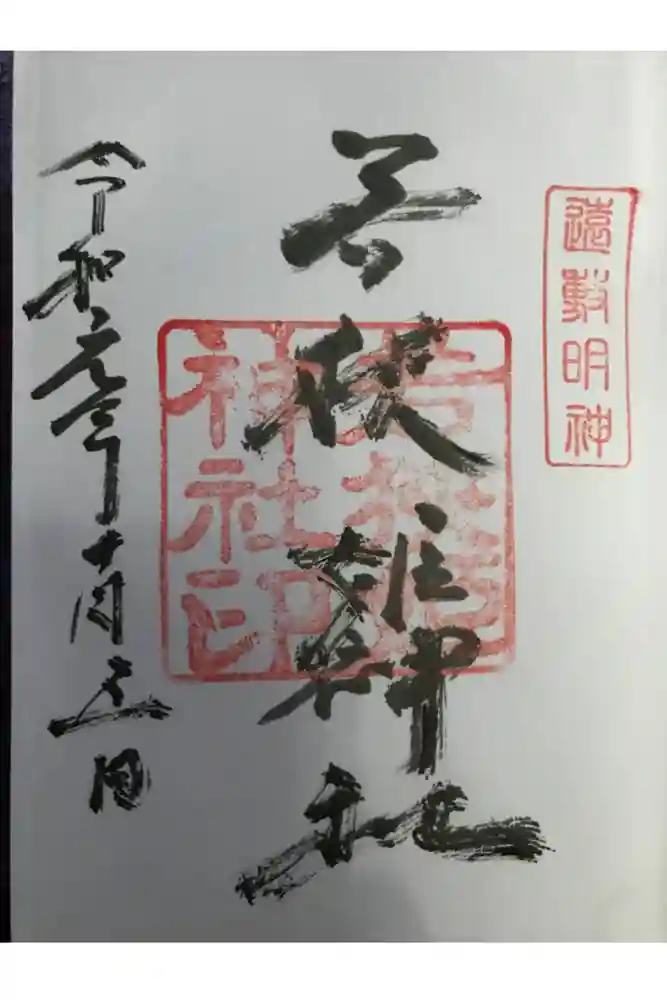 遠敷明神
若狭彦神社
若狭彦
神社印
令和元年十月五日